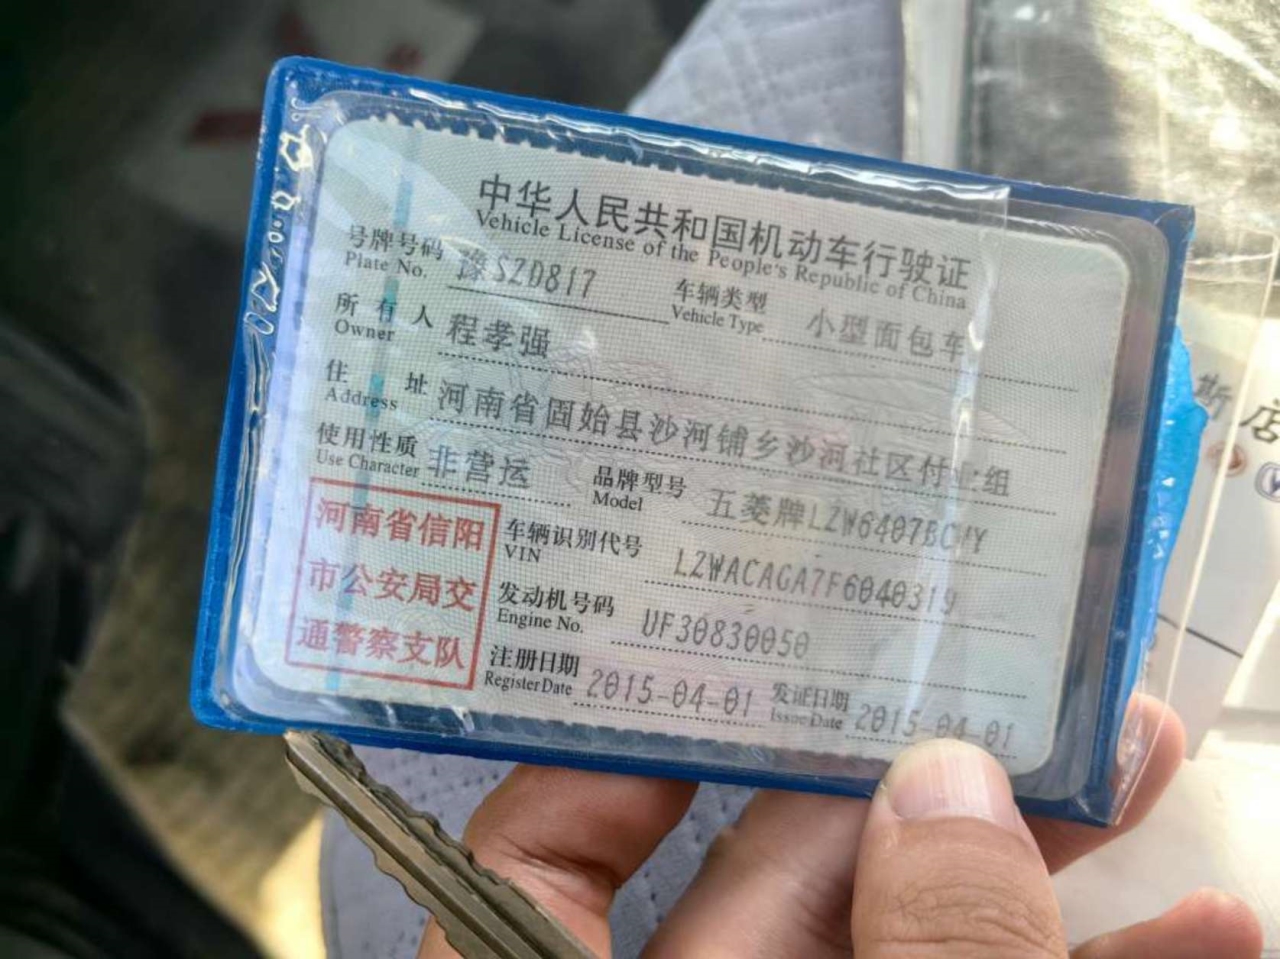 中华人民共和国机动车行驶证
Vehicle License of the People's Republic of China
号牌号码 豫SZD817 车辆类型 小型面包车
Plate No. Vehicle Type
所有人 程孝强
Owner
住址 河南省固始县沙河铺乡沙河社区付业组
Address
使用性质 非营运 品牌型号 五菱牌LZW6407BCHY
Use Character Model
河南省信阳
市公安局交
通警察支队
车辆识别代号 LZWACAGA7F6040319
VIN
发动机号码 UF30830050
Engine No.
注册日期 2015-04-01 发证日期 2015-04-01
Register Date Issue Date
店